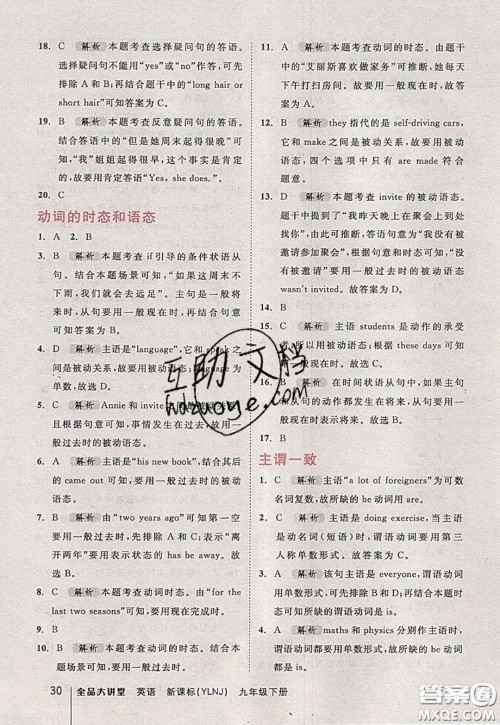 18. C 解析 本题考查选择疑问句的答语。
选择疑问句不能用“yes”或“no”作答，可
先排除 A 和 B；再结合题干中的“long hair or
short hair”可知答案为 C。
19. C 解析 本题考查反意疑问句的答语。
结合答语中的“但是她周末起得很晚”可
知，“我”姐姐起得很早，这个事实是肯定
的，故要用肯定回答“Yes, she does.”。
20. C
动词的时态和语态
1. A 2. B
3. B 解析 本题考查 if 引导的条件状语从
句。结合本题场景可知，“如果这周末不
下雨，我们就去远足”。主句是一般将
来时，从句要用一般现在时。故答案
为 B。
4. D 解析 主语是“language”，它和 speak
是被动关系，故用被动语态；language 为
单数，故选 D。
5. C 解析 Annie 和 invite 是被动关系，
根据句意可知，事情发生在过去，故用一
般过去时的被动语态。
6. A 解析 主语是“his new book”，结合其后
的 came out 可知，要用一般过去时的被
动语态。
7. B 解析 由“two years ago”可知第一空
要用一般过去时，先排除 C 和 D；表示“离
开两年”要用表示状态的 has be away。故
选 B。
8. D 解析 本题考查动词时态。由“for the
last two seasons”可知，要用现在完成时。
9. B
10. B 解析 本题考查动词的时态。根据
题意可知，要用一般过去时。
11. A 解析 本题考查动词的时态。由题干
中的“艾丽斯喜欢做家务”可推断，她每天下
午打扫房间。故答案为 A。
12. B 解析 they 指代的是 self-driving cars，
它和 make 之间是被动关系，故要用被动
语态，四个选项中只有 are made 符合
题意。
13. B 解析 本题考查 invite 的被动语态。
题干提到了“我昨天晚上在聚会上到处
找你”，由此推断，“你没有来，因为没有被
邀请参加聚会”。根据句意和时态可知，
要用一般过去时的被动语态
wasn't invited。
14. B
15. C 解析 主语 students 是动作的承受
者，所以用被动语态；根据 these days 可知
用一般现在时。
16. B 解析 在时间状语从句中，如果主句
和从句的动作都发生在将来，从句要用一
般现在时。
17. B
主谓一致
1. C 解析 主语“a lot of foreigners”为可数
名词复数，故所缺的 be 动词用 are。
2. C 解析 主语是 doing exercise，当主语
是动名词（短语）时，谓语动词要用第三
人称单数形式。故答案为 C。
3. A 解析 该句主语是 everyone，谓语动词
应用单数形式，可先排除 B 和 D；再结合
时态可知答案为 A。
4. B 解析 主语是 maths，谓语动词应用
单数形式，再结合句子的时态是一般现在
时可知所缺的谓语动词是 is。
30 全品大讲堂 英语 新课标(YLNJ) 九年级下册
互助文档
答案圈
MXQE.COM